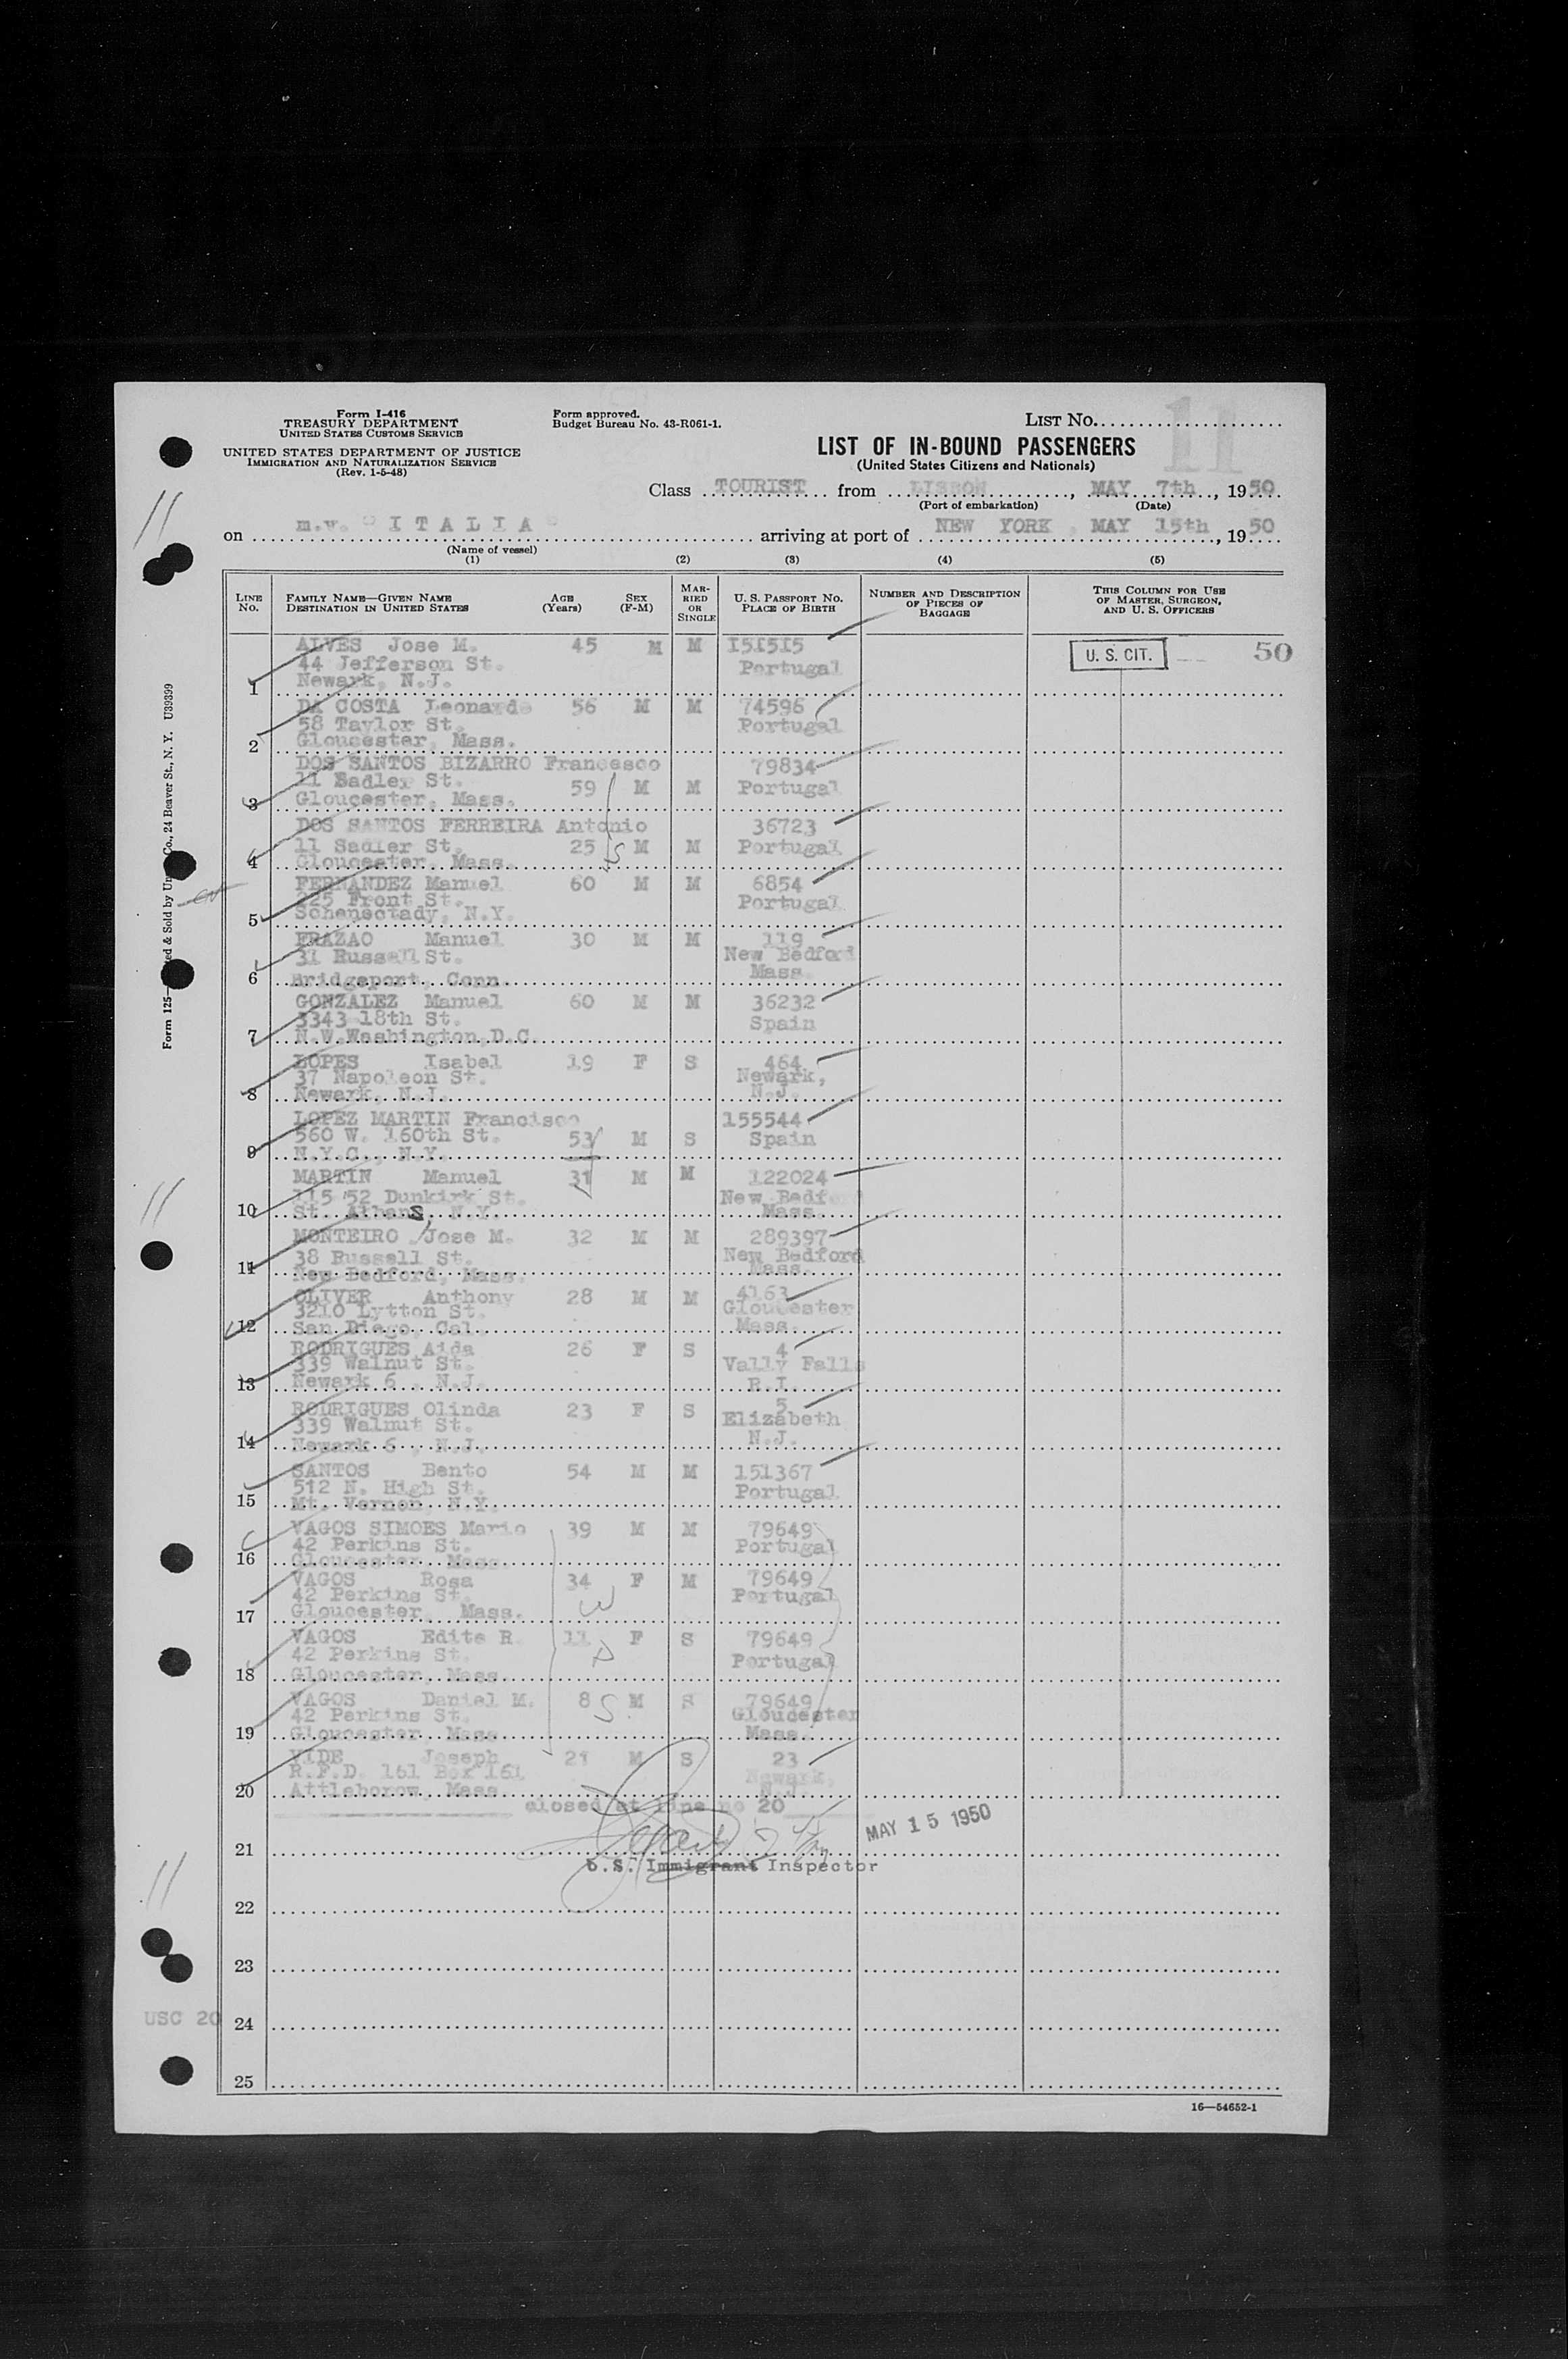 Form I-416
TREASURY DEPARTMENT
UNITED STATES CUSTOMS SERVICE
UNITED STATES DEPARTMENT OF JUSTICE
IMMIGRATION AND NATURALIZATION SERVICE
(Rev. 1-5-48)
Form approved.
Budget Bureau No. 43-R061-1.
LIST No. 11
LIST OF IN-BOUND PASSENGERS
(United States Citizens and Nationals)
Class TOURIST from LISBON, MAY 7th, 1950
(Port of embarkation) (Date)
on m.v. "ITALIA" arriving at port of NEW YORK, MAY 15th, 1950
(Name of vessel)
(1) (2) (3) (4) (5)
LINE No. FAMILY NAME—GIVEN NAME DESTINATION IN UNITED STATES AGE (Years) SEX (F-M) MARRIED OR SINGLE U. S. PASSPORT No. PLACE OF BIRTH NUMBER AND DESCRIPTION OF PIECES OF BAGGAGE THIS COLUMN FOR USE OF MASTER, SURGEON, AND U. S. OFFICERS
ALVES Jose M. 45 M M 151515 U. S. CIT. 50
44 Jefferson St. Portugal
1 Newark, N.J.
DA COSTA Leonardo 56 M M 74596
58 Taylor St. Portugal
2 Gloucester, Mass.
DOS SANTOS BIZARRO Francesco 79834
11 Sadler St. 59 M M Portugal
3 Gloucester, Mass.
DOS SANTOS FERREIRA Antonio 36723
11 Sadler St. 25 M M Portugal
4 Gloucester, Mass.
FERNANDEZ Manuel 60 M M 6854
225 Front St. Portugal
5 Schenectady, N.Y.
FRAZAO Manuel 30 M M 119
31 Russell St. New Bedford
6 Bridgeport, Conn. Mass.
GONZALEZ Manuel 60 M M 36232
3343 18th St. Spain
7 N.W.Washington,D.C.
LOPES Isabel 19 F S 464
37 Napoleon St. Newark,
8 Newark, N.J. N.J.
LOPEZ MARTIN Francisco 155544
560 W. 160th St. 53 M S Spain
9 N.Y.C., N.Y.
MARTIN Manuel 31 M M 122024
115 52 Dunkirk St. New Bedford
10 St. Albans, N.Y. Mass.
MONTEIRO Jose M. 32 M M 289397
38 Russell St. New Bedford
11 New Bedford, Mass. Mass.
OLIVER Anthony 28 M M 4163
3210 Lytton St. Gloucester
12 San Diego, Cal. Mass.
RODRIGUES Aida 26 F S 4
339 Walnut St. Vally Falls
13 Newark 6, N.J. R.I.
RODRIGUES Olinda 23 F S 5
339 Walnut St. Elizabeth
14 Newark 6, N.J. N.J.
SANTOS Bento 54 M M 151367
512 N. High St. Portugal
15 Mt. Vernon, N.Y.
VAGOS SIMOES Mario 39 M M 79649
42 Perkins St. Portugal
16 Gloucester, Mass.
VAGOS Rosa 34 F M 79649
42 Perkins St. Portugal
17 Gloucester, Mass. W
VAGOS Edite R. 11 F S 79649
42 Perkins St. D Portugal
18 Gloucester, Mass.
VAGOS Daniel M. 8 S M S 79649
42 Perkins St. Gloucester
19 Gloucester, Mass Mass.
VIDE Joseph 21 M S 23
R.F.D. 161 Box 161 Newark,
20 Attleborow, Mass. N.J.
closed at line no 20
MAY 15 1950
21
U.S. Immigrant Inspector
22
23
USC 20 24
25
16—54652-1
11
11
11
24 Beaver St., N. Y. U39399
Form 125
& Sold by
Co.,